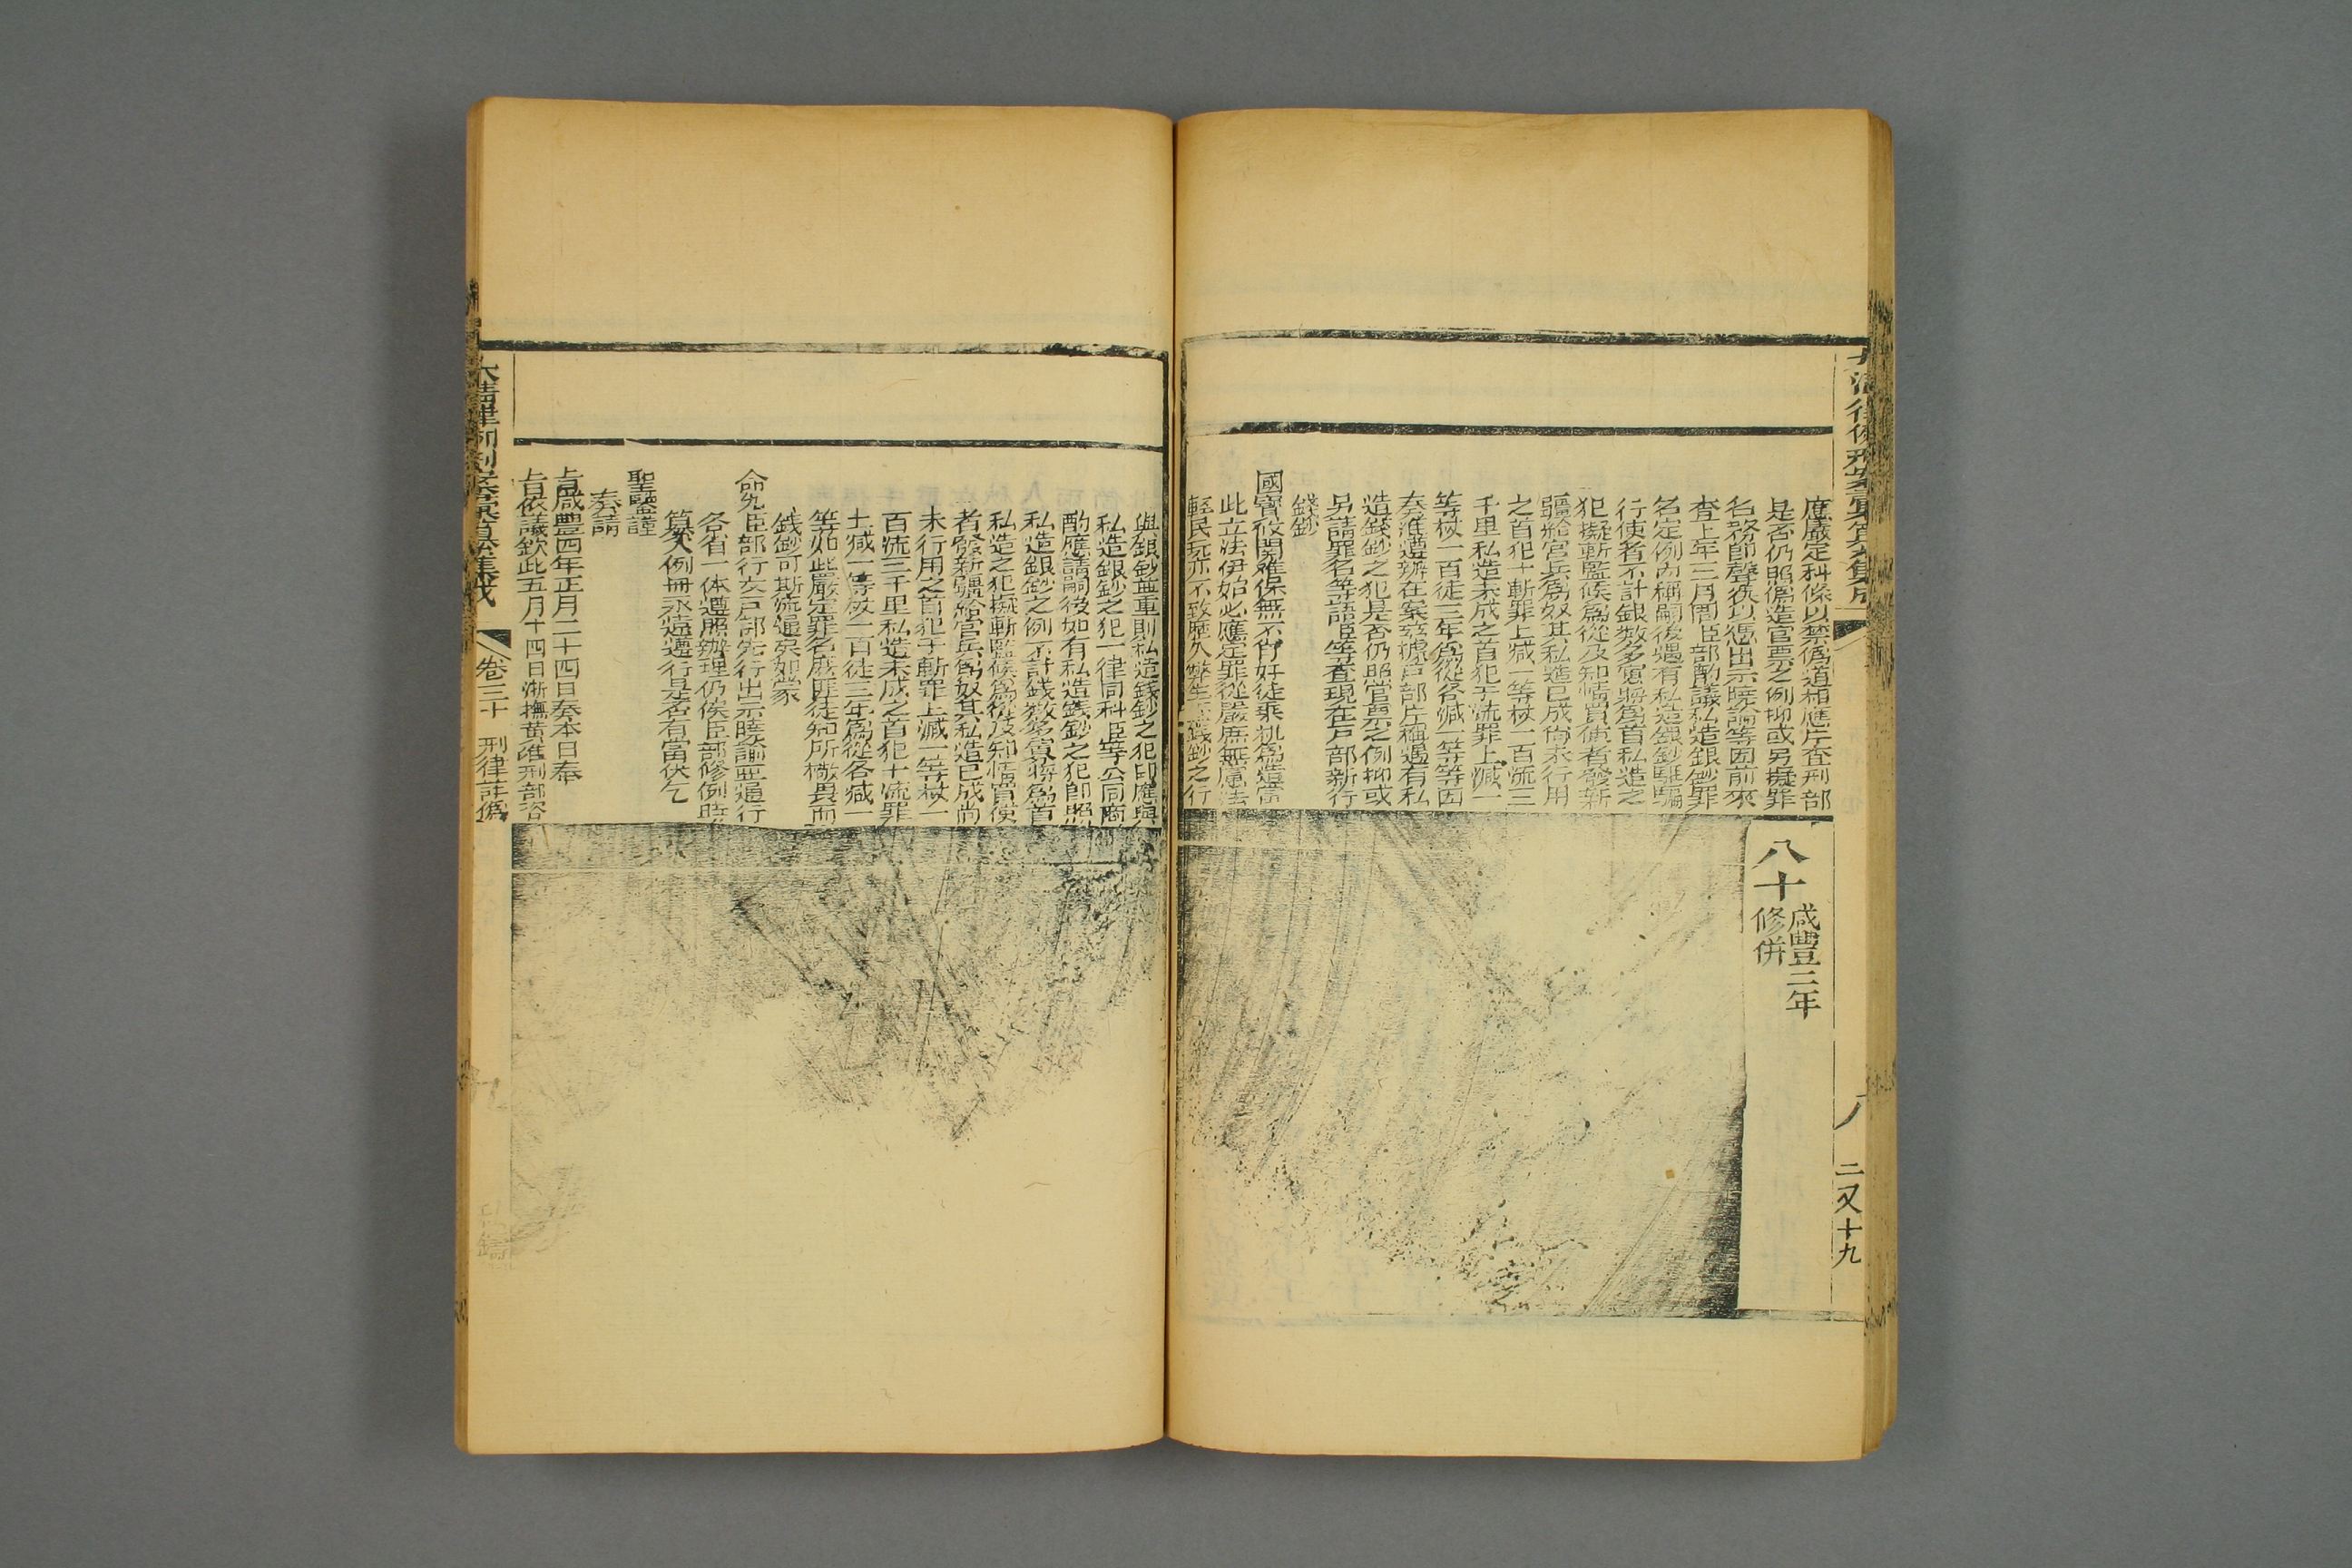 應嚴定科條以禁僞造相應片查刑部
是否仍照僞造官票之例抑或另擬罪
名務卽聲復以憑出示曉諭等因前來
查上年三月間臣部酌議私造銀鈔罪
名定例內稱嗣後遇有私造銀鈔誆騙
行使者不計銀數多寡將爲首私造之
犯擬斬監候爲從及知情買使者發新
疆給官兵爲奴其私造已成尚未行用
之首犯于斬罪上減一等杖一百流三
千里私造未成之首犯于流罪上減一
等杖一百徒三年爲從各減一等等因
奏准遵辦在案茲據戶部片稱遇有私
造錢鈔之犯是否仍照官票之例抑或
另請罪名等語臣等查現在戶部新行
錢鈔
國寶攸關難保無不肖奸徒乘机僞造當
此立法伊始必應定罪從嚴庶無慮法
輕民玩亦不致歷久弊生錢鈔之行
八十
咸豐三年
修併
二又十九
與銀鈔並重則私造錢鈔之犯卽應與
私造銀鈔之犯一律同科臣等公同商
酌應請嗣後如有私造錢鈔之犯卽照
私造銀鈔之例不計錢數多寡將爲首
私造之犯擬斬監候爲從及知情買使
者發新疆給官兵爲奴其私造已成尚
未行用之首犯于斬罪上減一等杖一
百流三千里私造未成之首犯于流罪
上減一等杖一百徒三年爲從各減一
等如此嚴定罪名庶匪徒知所儆畏而
錢鈔可斯流通矣如蒙
命允臣部行文戶部先行出示曉諭並通行
各省一体遵照辦理仍俟臣部修例時
纂入例冊永遠遵行是否有當伏乞
聖鑒謹
奏請
旨咸豐四年正月二十四日奏本日奉
旨依議欽此五月十四日浙撫黃准刑部咨
大清律例刑案彙纂集成
卷三十 刑律詐僞